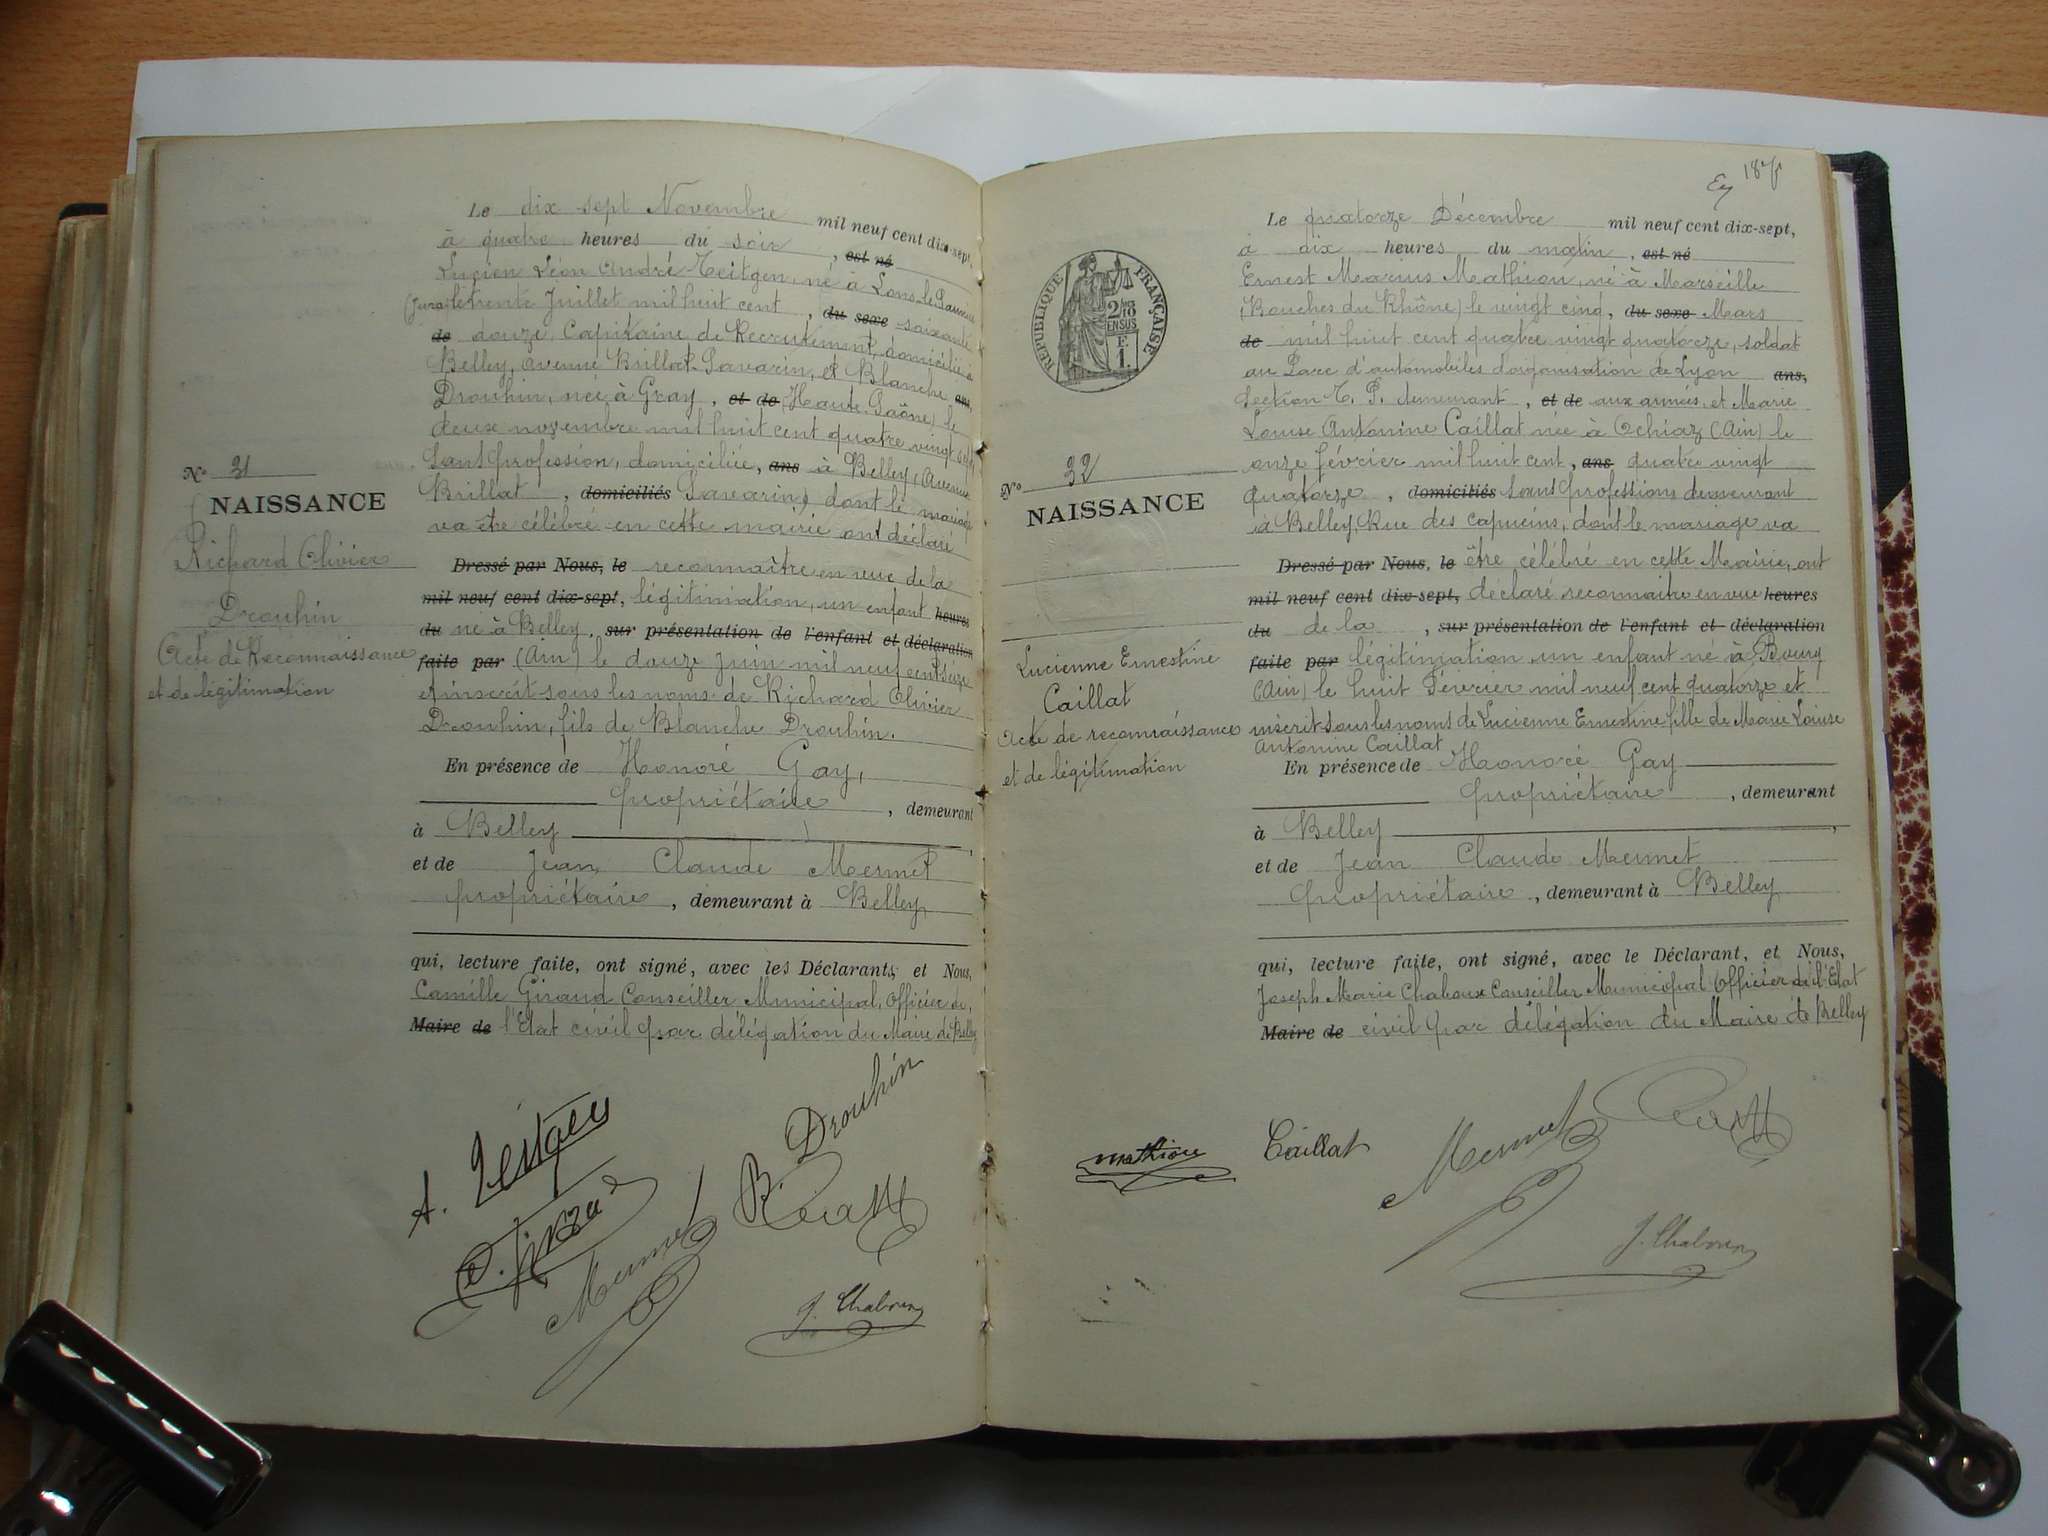 Le dix sept Novembre mil neuf cent dix-sept,
à quatre heures du soir, est né
Lucien Léon André Teitgen, né à Lons-le-Saunier
(Jura) le trente Juillet mil huit cent, du sexe soixante
de douze, Capitaine de Recrutement, domicilié à
Belley, avenue Brillat-Savarin, et Blanche ans,
Drouhin, née à Gray, et de (Haute-Saône) le
deux novembre mil huit cent quatre vingt sept,
Sans profession, domiciliée, ans à Belley (Avenue
Brillat, domiciliés Savarin), dont le mariage
va être célébré en cette mairie ont déclaré
Dressé par Nous, le reconnaître en vue de la
mil neuf cent dix-sept, légitimation, un enfant heures
du né à Belley, sur présentation de l'enfant et déclaration
faite par (Ain) le douze Juin mil neuf cent seize
et inscrit sous les noms de Richard Olivier
Drouhin, fils de Blanche Drouhin.
En présence de Honoré Gay,
propriétaire, demeurant
à Belley,
et de Jean Claude Mermet
propriétaire, demeurant à Belley
qui, lecture faite, ont signé, avec les Déclarants, et Nous,
Camille Giraud Conseiller Municipal, Officier de
Maire de l'Etat civil par délégation du Maire de Belley
N° 31
NAISSANCE
Richard Olivier
Drouhin
Acte de Reconnaissance
et de légitimation
A. Teitgen
B. Drouhin
Mermet
J. Chaboux
Ey
RÉPUBLIQUE FRANÇAISE
2/10 EN SUS
F.
1.
Le quatorze Décembre mil neuf cent dix-sept,
à dix heures du matin, est né
Ernest Marius Mathieu, né à Marseille
(Bouches du Rhône) le vingt cinq, du sexe Mars
de mil huit cent quatre vingt quatorze, soldat
au Parc d'automobiles d'organisation de Lyon ans,
Section T. P. demeurant, et de aux armées, et Marie
Louise Antonine Caillat née à Ochiaz (Ain) le
onze février mil huit cent, ans quatre vingt
quatorze, domiciliés sans profession demeurant
à Belley, Rue des Capucins, dont le mariage va
Dressé par Nous, le être célébré en cette Mairie, ont
mil neuf cent dix-sept, déclaré reconnaître en vue heures
du de la, sur présentation de l'enfant et déclaration
faite par légitimation un enfant né à Bourg
(Ain) le huit février mil neuf cent quatorze et
inscrit sous les noms de Lucienne Ernestine fille de Marie Louise
Antonine Caillat
En présence de Honoré Gay
propriétaire, demeurant
à Belley,
et de Jean Claude Mermet
propriétaire, demeurant à Belley
qui, lecture faite, ont signé, avec le Déclarant, et Nous,
Joseph Marie Chaboux Conseiller Municipal Officier de l'Etat
Maire de civil par délégation du Maire de Belley
N° 32
NAISSANCE
Lucienne Ernestine
Caillat
Acte de reconnaissance
et de légitimation
Mathieu
Caillat
Mermet
J. Chaboux